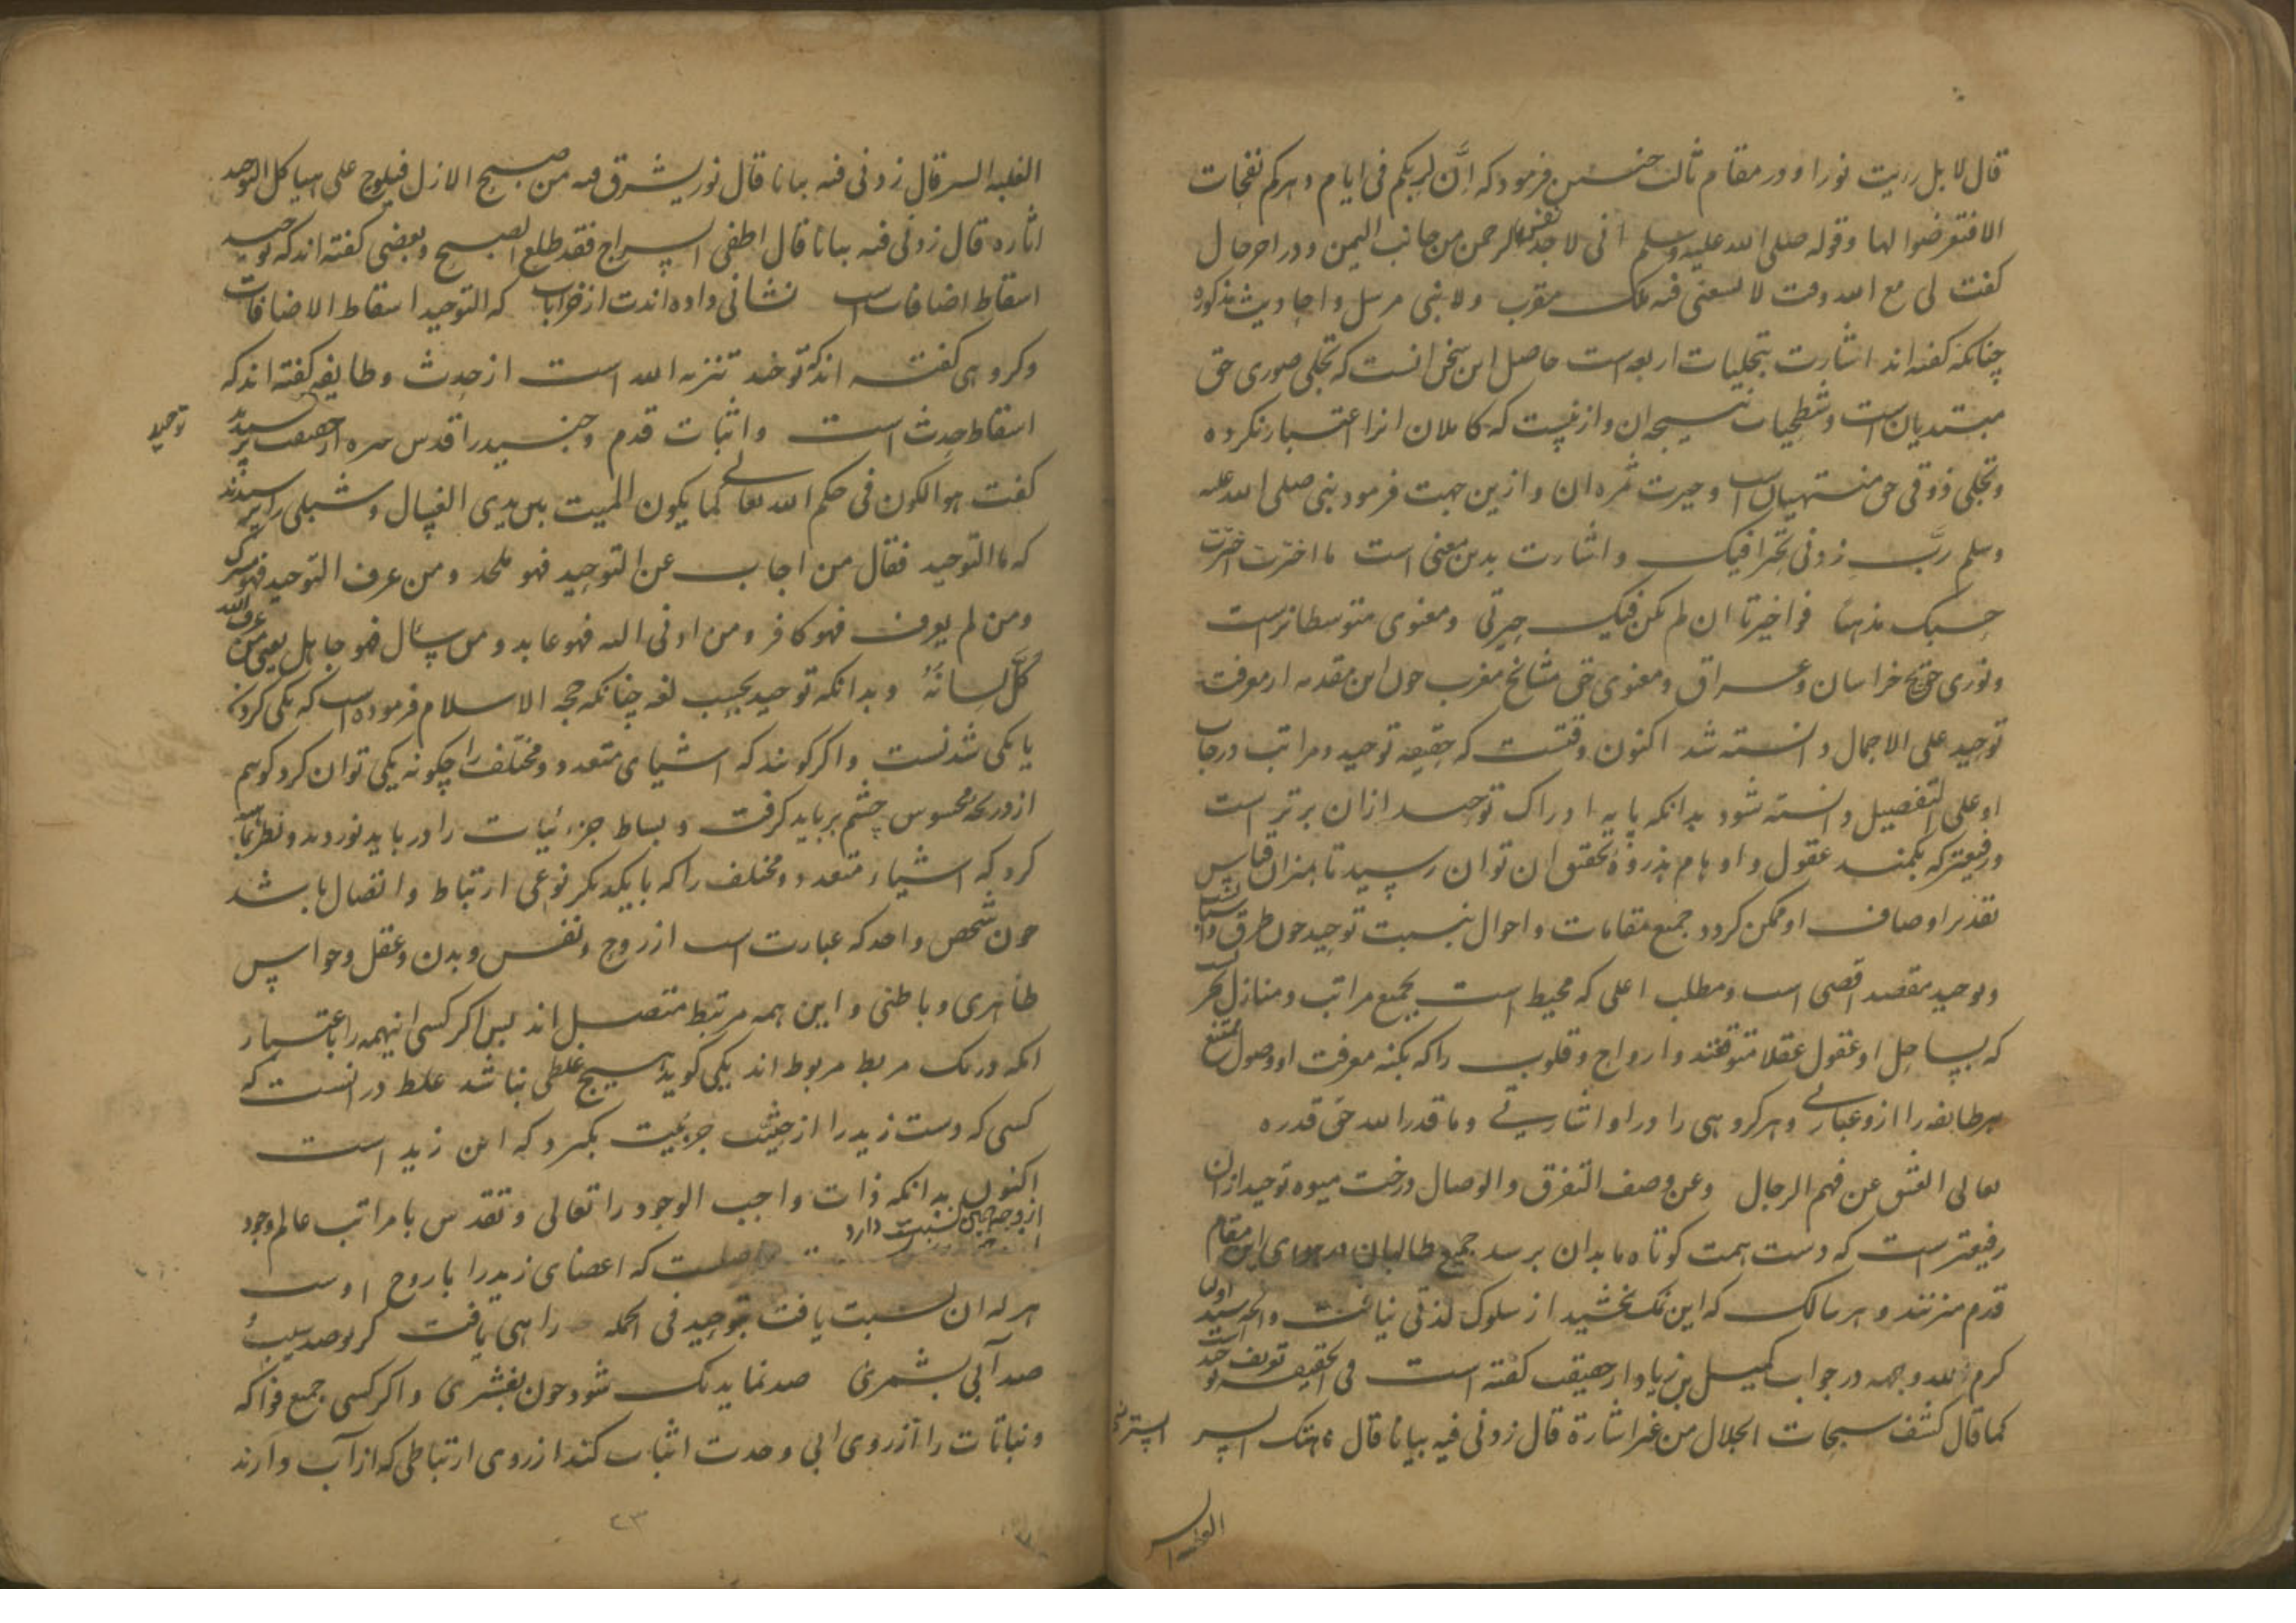 قال لا بل رایت نورا و در مقام ثالث چنین فرمود که اِنَّ لربکم فی ایام دهرکم نفحات
الا فتعرضوا لها و قوله صلی الله علیه وسلم انی لاجد نفس الرحمن من جانب الیمن و در اخر حال
کفت لی مع الله وقت لا یسعنی فیه ملک مقرب ولا نبی مرسل و احادیث مذکوره
چنانکه کفته اند اشارت بتجلیات اربعه است حاصل این سخن انست که تجلی صوری حق
مبتدیان است و شطحیات نتیجه ان و ازینست که کاملان انرا اعتبار نکرده
و تجلی ذوقی حق منتهیان است و حیرت ثمره ان و ازین جهت فرمود نبی صلی الله علیه
وسلم ربِّ زدنی تحیرا فیک و اشارت بدین معنی است ما اخترت اخترت
حبک مذهبا فواحیرتا ان لم تکن فیک حیرتی و معنوی متوسطانراست
و نوری حق مشایخ خراسان و عراق و معنوی حق مشایخ مغرب چون این مقدمه از معرفت
توحید علی الاجمال دانسته شد اکنون وقتست که حقیقه توحید و مراتب درجات
او علی التفصیل دانسته شود بدانکه پایه ادراک توحید ازان برتر است
و رفیعتر که بکمند عقول و اوهام بذروهٔ تحقیق ان توان رسید تا بمیزان قیاس
تقدیر اوصاف او ممکن کردد جمیع مقامات و احوال بنسبت توحید چون طرق و اسباب
و توحید مقصد اقصی است و مطلب اعلی که محیط است بجمیع مراتب و منازل بحریست
که بساحل او عقول عقلا متوقفند و ارواح و قلوب را که بکنه معرفت او وصول ممتنع
هر طایفه را ازو عبارتی و هر کروهی را در او اشارتی و ما قدرا الله حق قدره
تعالی العشق عن فهم الرجال و عن وصف التفرق والوصال درخت میوه توحید ازان
رفیعتر است که دست همت کوتاه ما بدان برسد جمیع طالبان در هوای این مقام
قدم میزنند و هر سالک که این نمک نچشید از سلوک لذتی نیافت و انچه سید اولیا
کرم الله وجهه در جواب کمیل بن زیاد از حقیقت کفته است فی الحقیقه تعریف توحید است
کما قال کشف سبحات الجلال من غیر اشارة قال زدنی فیه بیانا قال هتک السر
الغلبه السر
الغلبه السر قال زدنی فیه بیانا قال نور یشرق فیه من صبح الازل فیلوح علی هیاکل التوحید
اثاره قال زدنی فیه بیانا قال اطفی السراج فقد طلع الصبح و بعضی کفته اند که توحید
اسقاط اضافات است نشانی داده اندت از خرابات که التوحید اسقاط الاضافات
و کروهی کفته اند که توحید تنزیه الله است از حدث و طایفه کفته اند که
توحید
اسقاط حدث است و اثبات قدم و جنید را قدس سره از حقیقت پرسیدند
کفت هو الکون فی حکم الله تعالی کما یکون المیت بین یدی الغسال و شبلی را پرسیدند
که ما التوحید فقال من اجاب عن التوحید فهو ملحد و من عرف التوحید فهو مشرک
و من لم یعرف فهو کافر و من اومی الله فهو عابد و من سأل فهو جاهل یعنی من عرف الله
کَلَّ لسانُهُ و بدانکه توحید بحسب لغه چنانکه حجه الاسلام فرموده است که یکی کردنست
یا یکی شدنست و اکر کویند که اشیای متعدد و مختلف را چکونه یکی توان کرد کویم
از دریچه محسوس چشم بر باید کرفت و بساط جزئیات را در باید نوردید و نظر بمعانی
کرد که اشیاء متعدد و مختلف را که با یکدیکر نوعی ارتباط و اتصال باشد
چون شخص واحد که عبارت است از روح و نفس و بدن و عقل و حواس
ظاهری و باطنی و این همه مرتبط متصل اند پس اکر کسی اینهمه را باعتبار
انکه در یک مربط مربوط اند یکی کوید هیچ غلطی نباشد غلط در انست که
کسی که دست زید را از حیثیت جزئیت بکیرد که این زید است
اکنون بدانکه ذات واجب الوجود را تعالی و تقدس با مراتب عالم وجود
از وجهی همین نسبت دارد
که اعضای زید را با روح اوست
هر که ان نسبت یافت بتوحید فی الجمله راهی یافت کر تو صد سیب
صد آبی بشمری صد نماید یک شود چون بفشری و اکر کسی جمیع فواکه
و نباتات را از روی ابی وحدت اثبات کند از روی ارتباطی که از آب دارند
۲۳